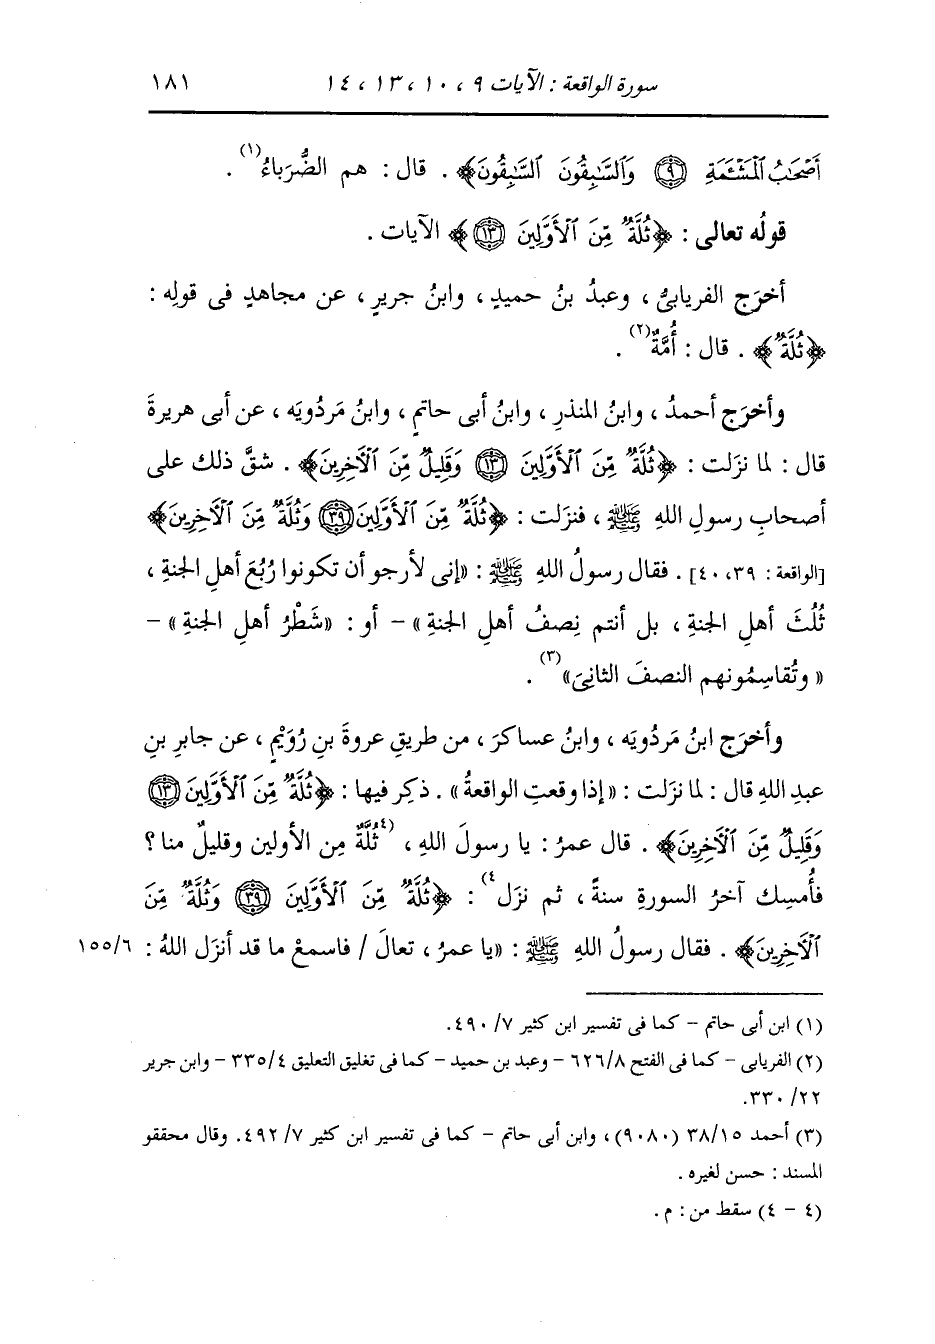 سورة الواقعة : الآيات ٩ ، ١٠ ، ١٣ ، ١٤ ١٨١
أَصْحَٰبُ ٱلْمَشْـَٔمَةِ ٩ وَٱلسَّٰبِقُونَ ٱلسَّٰبِقُونَ﴾ . قال : هم الضُّرَباءُ(١) .
قولُه تعالى : ﴿ثُلَّةٌ مِّنَ ٱلْأَوَّلِينَ ١٣﴾ الآيات .
أخرَج الفريابىُّ ، وعبدُ بنُ حميدٍ ، وابنُ جريرٍ ، عن مجاهدٍ فى قولِه :
﴿ثُلَّةٌ﴾ . قال : أُمَّةٌ(٢) .
وأخرَج أحمدُ ، وابنُ المنذرِ ، وابنُ أبى حاتمٍ ، وابنُ مَردُويَه ، عن أبى هريرةَ
قال : لما نزَلت : ﴿ثُلَّةٌ مِّنَ ٱلْأَوَّلِينَ ١٣ وَقَلِيلٌ مِّنَ ٱلْآخِرِينَ﴾ . شقَّ ذلك على
أصحابِ رسولِ اللهِ ﷺ ، فنزَلت : ﴿ثُلَّةٌ مِّنَ ٱلْأَوَّلِينَ ٣٩ وَثُلَّةٌ مِّنَ ٱلْآخِرِينَ﴾
[الواقعة : ٣٩، ٤٠] . فقال رسولُ اللهِ ﷺ : «إنى لأرجو أن تكونوا رُبُعَ أهلِ الجنةِ ،
ثُلُثَ أهلِ الجنةِ ، بل أنتم نِصفُ أهلِ الجنةِ » – أو : «شَطْرُ أهلِ الجنةِ » –
« وتُقاسِمُونهم النصفَ الثانىَ»(٣) .
وأخرَج ابنُ مَردُويَه ، وابنُ عساكرَ ، من طريقِ عروةَ بنِ رُوَيْمٍ ، عن جابرِ بنِ
عبدِ اللهِ قال : لما نزَلت : «إذا وقعتِ الواقعةُ» . ذكِر فيها : ﴿ثُلَّةٌ مِّنَ ٱلْأَوَّلِينَ ١٣
وَقَلِيلٌ مِّنَ ٱلْآخِرِينَ﴾ . قال عمرُ : يا رسولَ اللهِ ، (٤ثُلَّةٌ مِن الأولين وقليلٌ منا ؟
فأُمسِك آخرُ السورةِ سنةً ، ثم نزَل٤) : ﴿ثُلَّةٌ مِّنَ ٱلْأَوَّلِينَ ٣٩ وَثُلَّةٌ مِّنَ
ٱلْآخِرِينَ﴾ . فقال رسولُ اللهِ ﷺ : «يا عمرُ ، تعالَ / فاسمعْ ما قد أنزَل اللهُ : ١٥٥/٦
(١) ابن أبى حاتم – كما فى تفسير ابن كثير ٧/ ٤٩٠.
(٢) الفريابى – كما فى الفتح ٦٢٦/٨ – وعبد بن حميد – كما فى تغليق التعليق ٣٣٥/٤ – وابن جرير
٢٢/ ٣٣٠.
(٣) أحمد ٣٨/١٥ (٩٠٨٠) ، وابن أبى حاتم – كما فى تفسير ابن كثير ٧/ ٤٩٢. وقال محققو
المسند : حسن لغيره .
(٤ – ٤) سقط من : م .